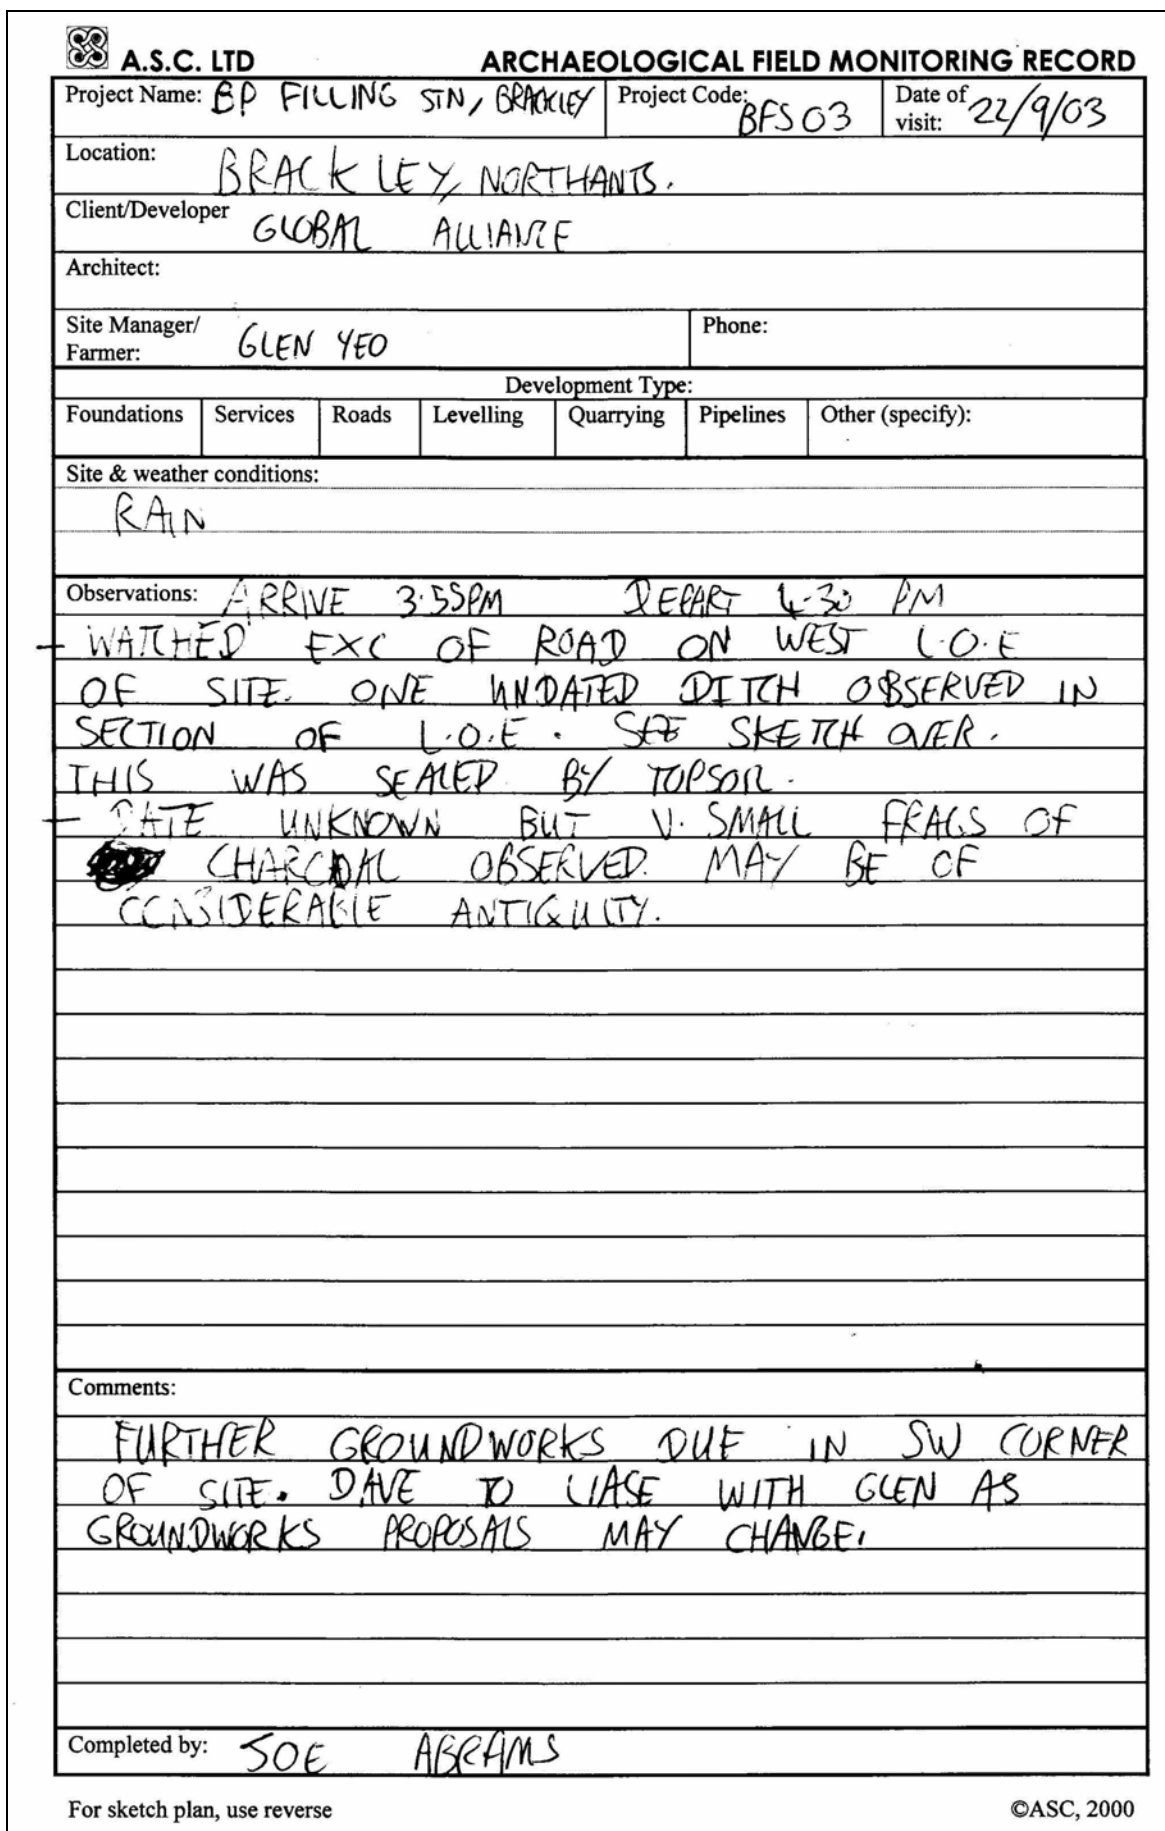 A.S.C. LTD ARCHAEOLOGICAL FIELD MONITORING RECORD
Project Name: BP FILLING STN, BRACKLEY Project Code: BFS03 Date of visit: 22/9/03
Location: BRACKLEY, NORTHANTS.
Client/Developer GLOBAL ALLIANCE
Architect:
Site Manager/ Farmer: GLEN YEO Phone:
Development Type:
Foundations Services Roads Levelling Quarrying Pipelines Other (specify):
Site & weather conditions:
RAIN
Observations: ARRIVE 3.55PM DEPART 4.30 PM
- WATCHED EXC OF ROAD ON WEST L.O.E
OF SITE. ONE UNDATED DITCH OBSERVED IN
SECTION OF L.O.E. SEE SKETCH OVER.
THIS WAS SEALED BY TOPSOIL.
- DATE UNKNOWN BUT V. SMALL FRAGS OF
CHARCOAL OBSERVED. MAY BE OF
CONSIDERABLE ANTIQUITY.
Comments:
FURTHER GROUNDWORKS DUE IN SW CORNER
OF SITE. DAVE TO LIASE WITH GLEN AS
GROUNDWORKS PROPOSALS MAY CHANGE.
Completed by: JOE ABRAMS
For sketch plan, use reverse ©ASC, 2000